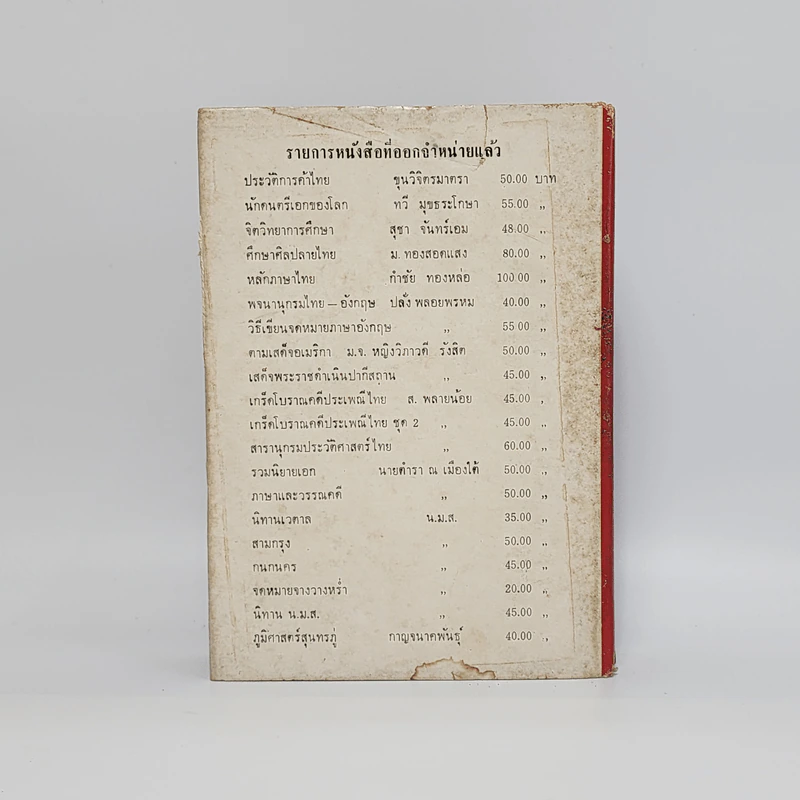 รายการหนังสือที่ออกจำหน่ายแล้ว
ประวัติการค้าไทย ขุนวิจิตรมาตรา 50.00 บาท
นักดนตรีเอกของโลก ทวี มุขธระโกษา 55.00 „
จิตวิทยาการศึกษา สุชา จันทร์เอม 48.00 „
ศึกษาศิลปลายไทย ม. ทองสอดแสง 80.00 „
หลักภาษาไทย กำชัย ทองหล่อ 100 00 „
พจนานุกรมไทย – อังกฤษ ปลั่ง พลอยพรหม 40.00 „
วิธีเขียนจดหมายภาษาอังกฤษ „ 55 00 „
ตามเสด็จอเมริกา ม.จ. หญิงวิภาวดี รังสิต 50.00 „
เสด็จพระราชดำเนินปากีสถาน „ 45.00 „
เกร็ดโบราณคดีประเพณีไทย ส. พลายน้อย 45.00 „
เกร็ดโบราณคดีประเพณีไทย ชุด 2 „ 45.00 „
สารานุกรมประวัติศาสตร์ไทย „ 60.00 „
รวมนิยายเอก นายตำรา ณ เมืองใต้ 50.00 „
ภาษาและวรรณคดี „ 50.00 „
นิทานเวตาล น.ม.ส. 35.00 „
สามกรุง „ 50.00 „
กนกนคร „ 45.00 „
จดหมายจางวางหร่ำ „ 20.00 „
นิทาน น.ม.ส. „ 45.00 „
ภูมิศาสตร์สุนทรภู่ กาญจนาคพันธุ์ 40.00 „